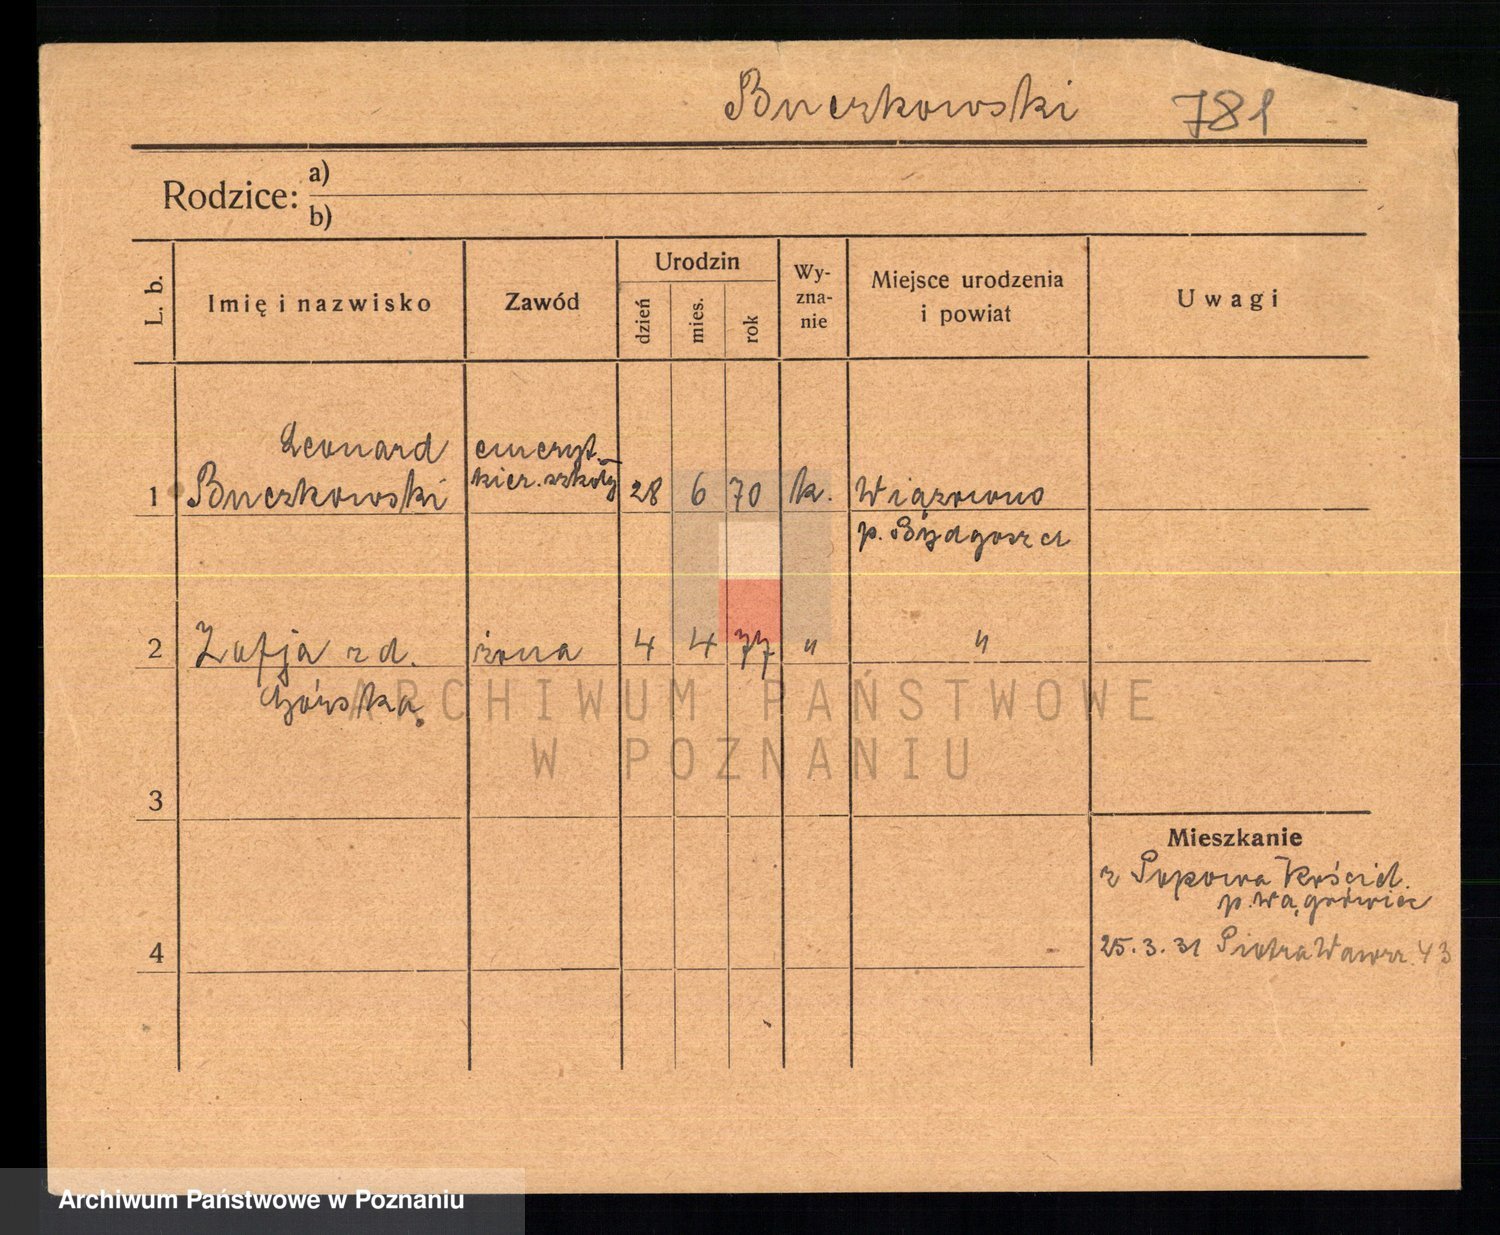 Buczkowski 781
Rodzice: a)
b)
L. b. Imię i nazwisko Zawód Urodzin dzień mies. rok Wy-zna-nie Miejsce urodzenia i powiat Uwagi
Leonard emeryt.
kier. szkoły
1 Buczkowski 28 6 70 k. Wiązowno
p. Bydgoszcz
2 Zofja z d. żona 4 4 77 " "
Górska
ARCHIWUM PAŃSTWOWE
W POZNANIU
3
Mieszkanie
z Popowa Kościel.
p. Wągrówiec
4 25.3.31 Piotra Wawrz. 43
Archiwum Państwowe w Poznaniu